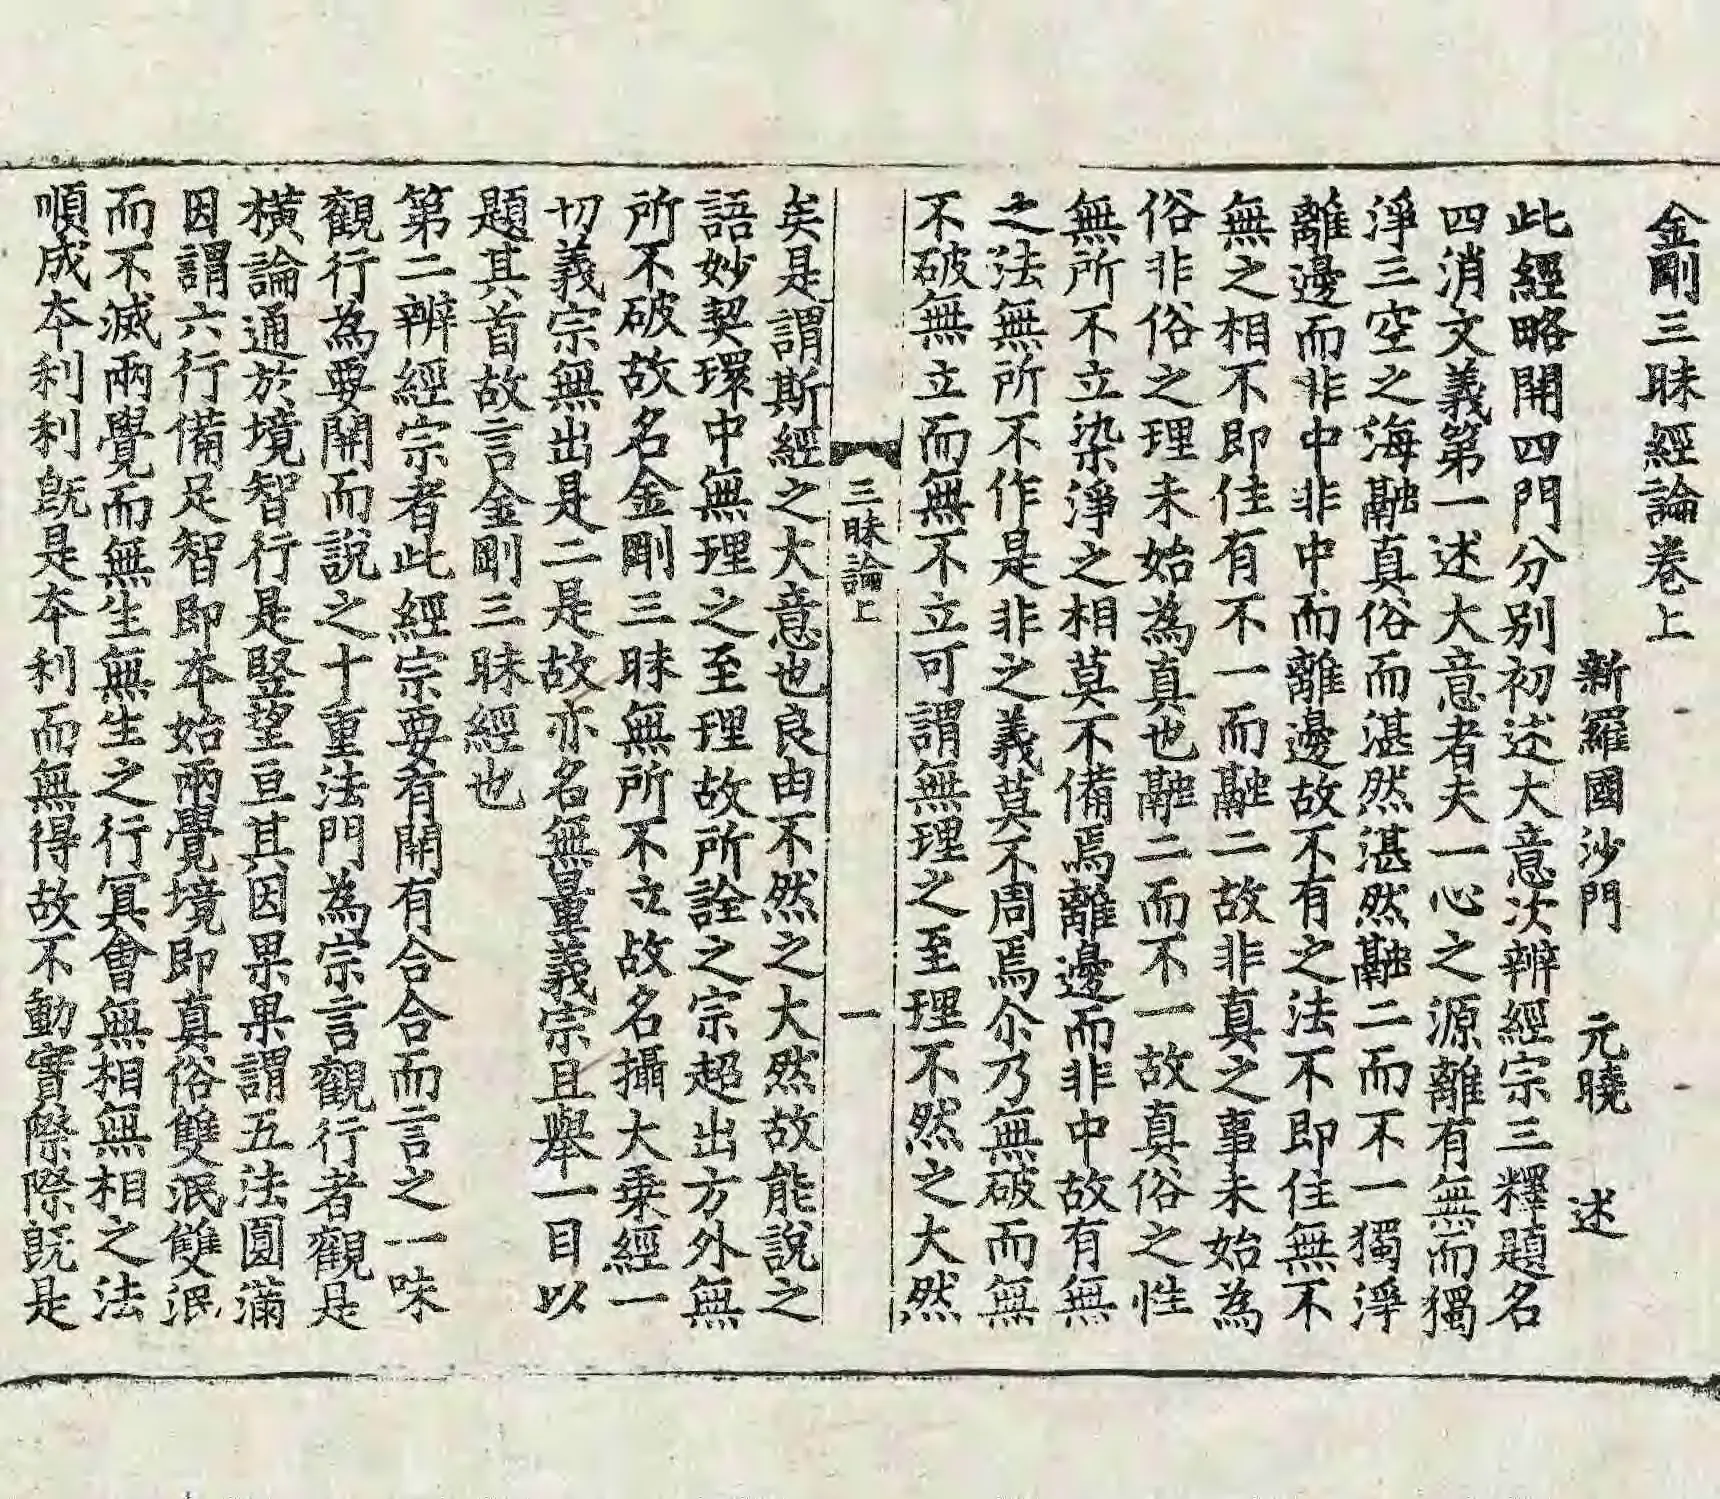 金剛三昧經論卷上
新羅國沙門 元曉 述
此經略開四門分別初述大意次辨經宗三釋題名
四消文義第一述大意者夫一心之源離有無而獨
淨三空之海融真俗而湛然湛然融二而不一獨淨
離邊而非中非中而離邊故不有之法不即住無不
無之相不即住有不一而融二故非真之事未始為
俗非俗之理未始為真也融二而不一故真俗之性
無所不立染淨之相莫不備焉離邊而非中故有無
之法無所不作是非之義莫不周焉尒乃無破而無
不破無立而無不立可謂無理之至理不然之大然
三昧論上 一
矣是謂斯經之大意也良由不然之大然故能說之
語妙契環中無理之至理故所詮之宗超出方外無
所不破故名金剛三昧無所不立故名攝大乗經一
切義宗無出是二是故亦名無量義宗且舉一目以
題其首故言金剛三昧經也
第二辨經宗者此經宗要有開有合合而言之一味
觀行為要開而說之十重法門為宗言觀行者觀是
橫論通於境智行是竪望亘其因果果謂五法圓滿
因謂六行備足智即本始兩覺境即真俗雙泯雙泯
而不滅兩覺而無生無生之行冥會無相無相之法
順成本利利旣是本利而無得故不動實際際旣是